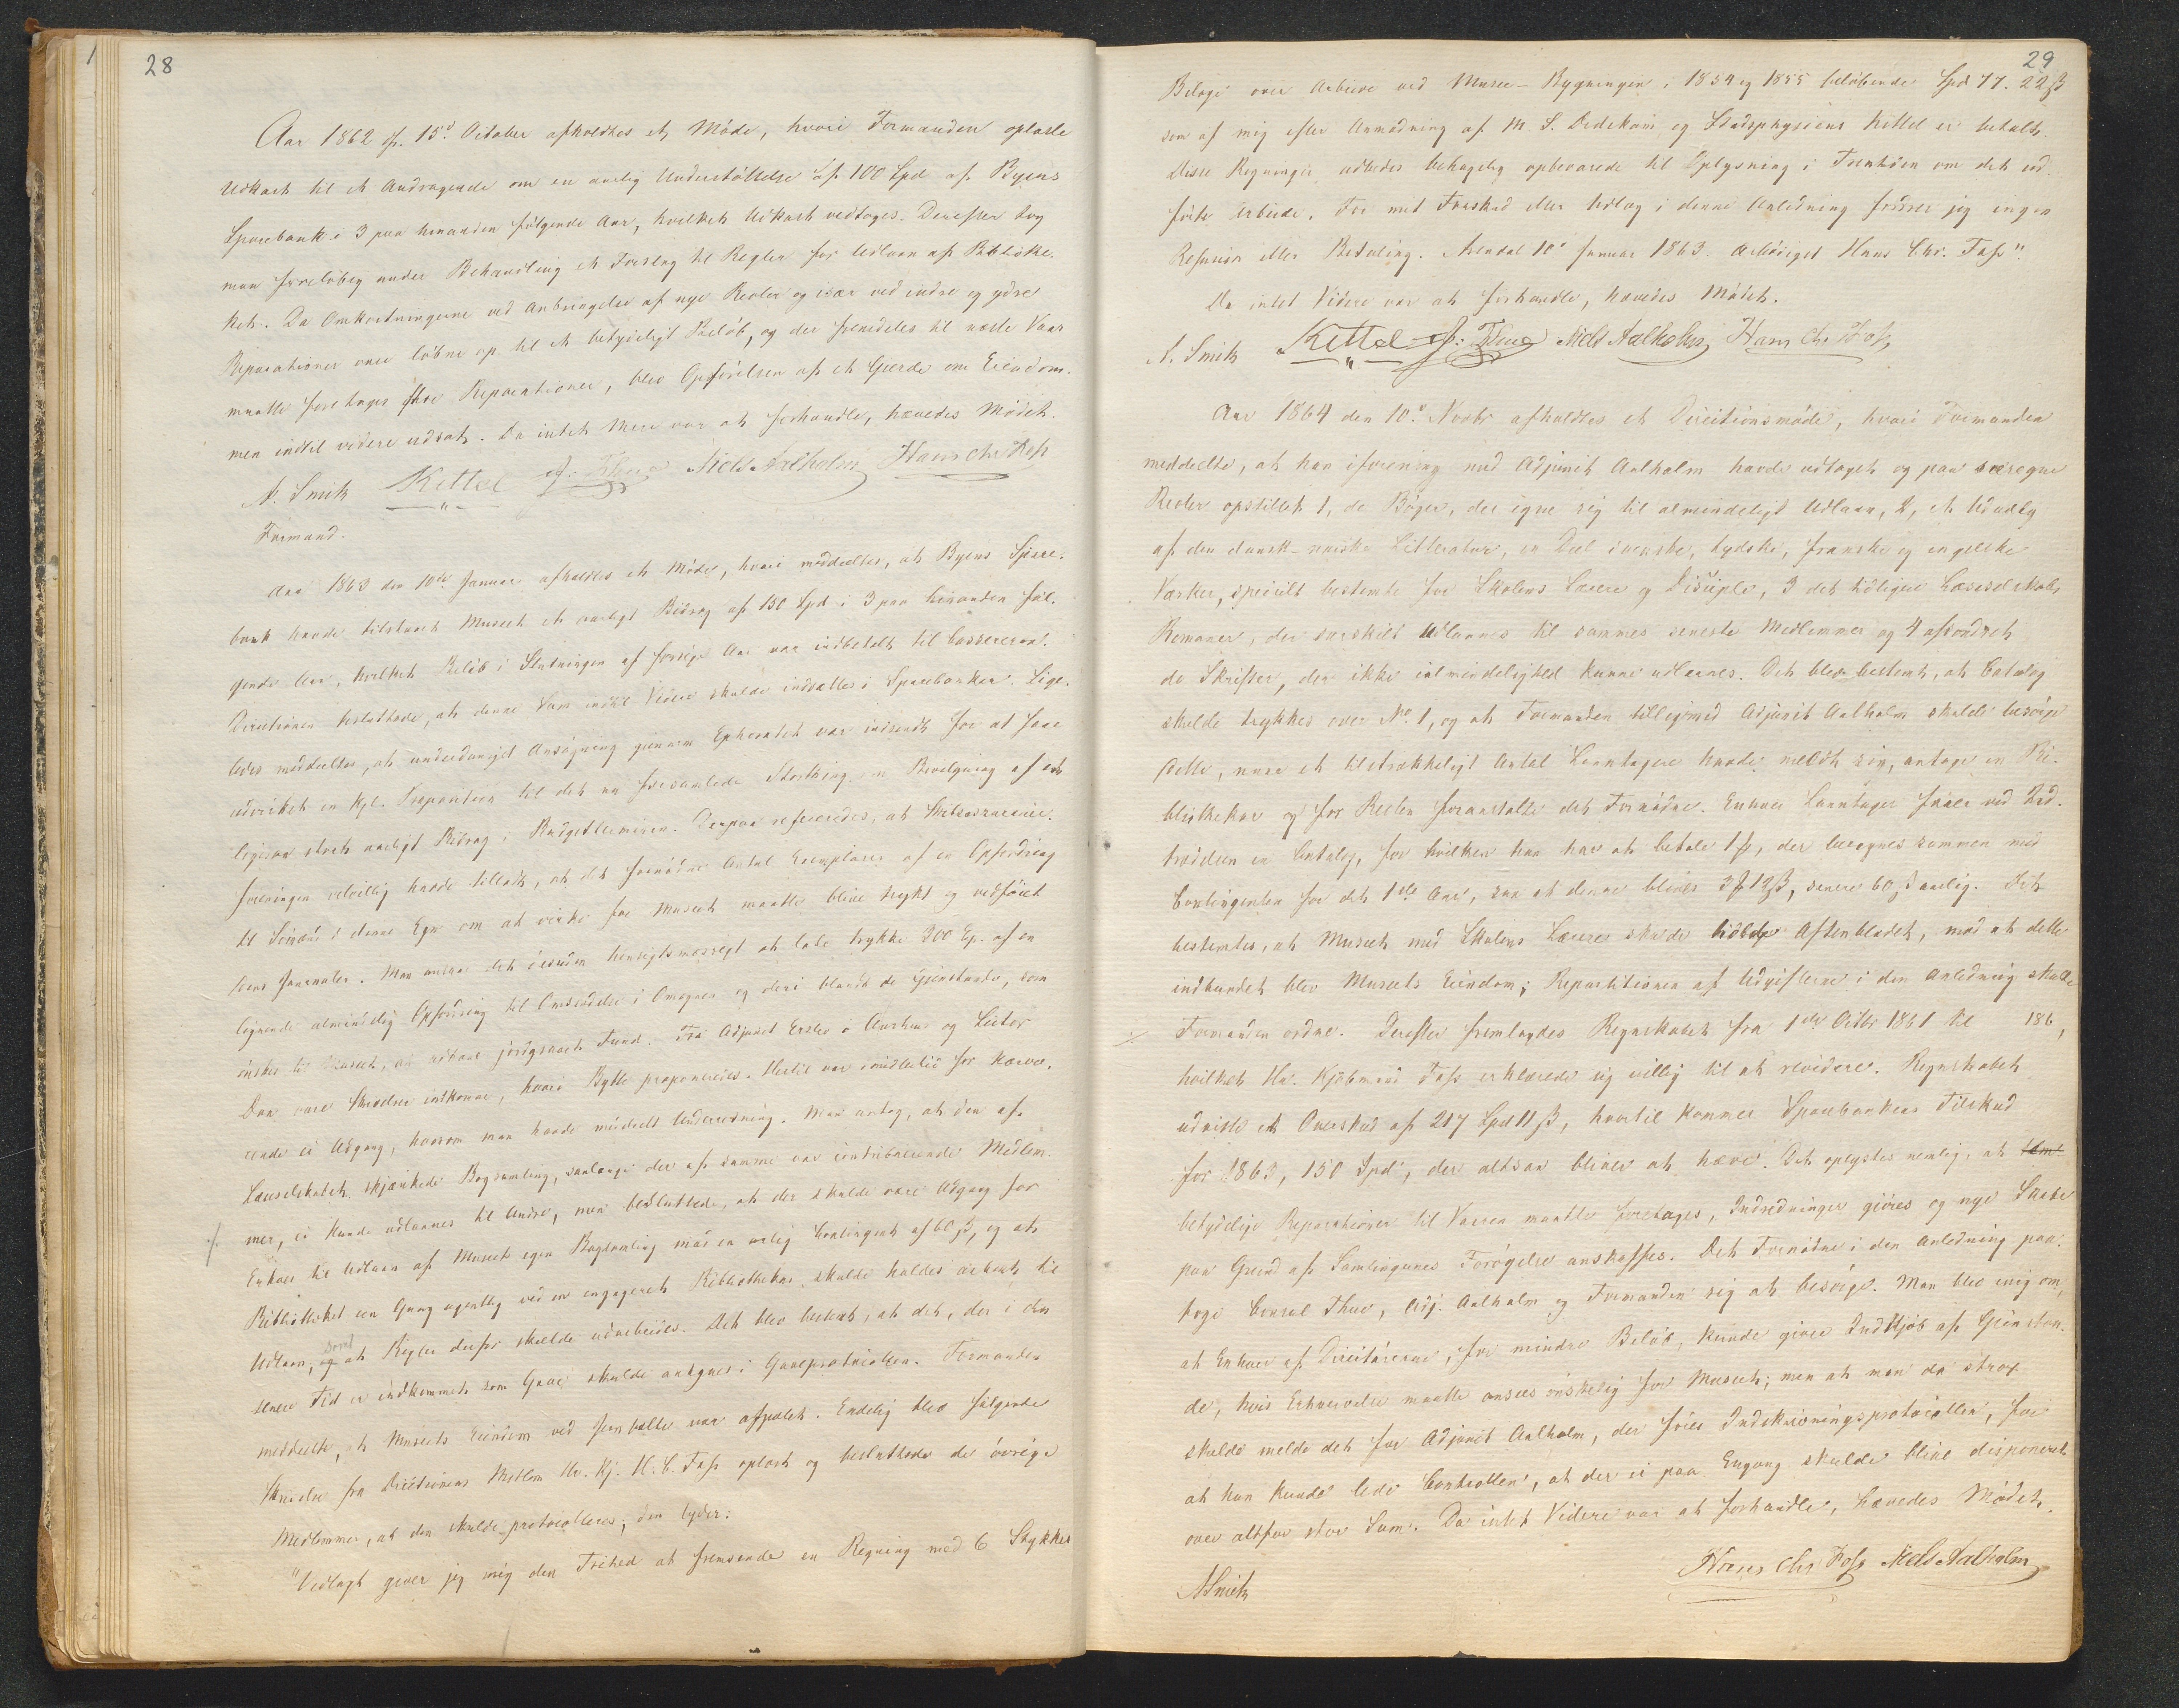 28
Aar 1862 d. 15d October afholdtes et Møde, hvori Formanden oplæste
Udkast til et Andragende om en aarlig Understøttelse af 100 Spd af Byens
Sparebank i 3 paa hinanden følgende Aar, hvilket Udkast vedtoges. Derefter tog
man foreløbig under Behandling et Forslag til Regler for Udlaan af Bibliothe-
ket. Da Omkostningerne ved Anbringelse af nye Reoler og især ved indre og ydre
Reparationer vare løbne op til et betydeligt Beløb, og der fremdeles til næste Vaar
maatte foretages flere Reparationer, blev Opførelsen af et Gjerde om Eiendom-
men indtil videre udsat. Da intet Mere var at forhandle, hævedes Mødet.
A. Smith Kittel Niels Aalholm Hans Chr Foss
Formand.
Aar 1863 den 10de Januar afholdtes et Møde, hvori meddeeltes, at Byens Spare-
bank havde tilstaaet Museet et aarligt Bidrag af 150 Spd i 3 paa hinanden føl-
gende Aar, hvilket Beløb i Slutningen af forrige Aar var indbetalt til Cassereren.
Directionen besluttede, at denne Sum indtil Videre skulde indsættes i Sparebanken. Lige-
ledes meddeeltes, at underdanigst Ansøgning gjennem Ephoratet var indsendt for at faae
udvirket en kgl. Proposition til det nu forsamlede Storthing om Bevilgning af et
ligesaa stort aarligt Bidrag i Budgetterminen. Derpaa refereredes, at
foreningen velvillig havde tilladt, at det fornødne Antal Exemplarer af en Opfordring
til Sømænd i denne Egn om at virke for Museet maatte blive trykt og vedføiet
dens Journaler. Man ansaa det desuden hensigtsmæssigt at lade trykke 300 Ex. af en
lignende almindelig Opfordring til Omsendelse i Omegnen og deri blandt de Gjenstande, som
ønskes til Museet, at udbede jordgravet Fund. Fra Adjunct Erslev i Aarhuus og Lector
Daa vare Skrivelser indkomne, hvori Bytte proponeredes. Hertil var imidlertid for Nærvæ-
rende ei Adgang, hvorom man havde meddeelt Underretning. Man antog, at den af
Læseselskabet skjænkede Bogsamling, saalænge der af samme var contribuerende Medlem-
mer, ei kunde udlaanes til Andre, men besluttede, at der skulde være Adgang for
Enhver til Udlaan af Museets egen Bogsamling mod en aarlig Contingent af 60 ß, og at
Bibliotheket een Gang ugentlig ved en engageret Bibliothekar skulde holdes aabent til
Udlaan, og samt at Regler derfor skulde udarbeides. Det blev bestemt, at det, der i den
senere Tid er indkommet som Gave skulde antegnes i Gaveprotocollen. Formanden
meddeelte, at Museets Eiendom ved Jernbolte var afpælet. Endelig blev følgende
Skrivelse fra Directionens Medlem Hr. Kj. H. C. Foss oplæst og besluttede de øvrige
Medlemmer, at den skulde protocolleres; den lyder:
"Vedlagt giver jeg mig den Frihed at fremsende en Regning med 6 Stykker
29
Bilage over Arbeide ved Musee-Bygningen i 1854 og 1855 beløbende Spd 77. 22 ß
som af mig efter Anmodning af M. S. Dedekam og Stadsphysicus Kittel er betalt.
Disse Regninger udbedes behagelig opbevarede til Oplysning i Fremtiden om det ud-
førte Arbeide. For mit Forskud eller Udlæg i denne Anledning fordrer jeg ingen
Refusion eller Betaling. Arendal 10d Januar 1863. Ærbødigst Hans Chr. Foss".
Da intet Videre var at forhandle, hævedes Mødet.
A. Smith Kittel Niels Aalholm Hans Chr Foss
Aar 1864 den 10d Novbr afholdtes et Directionsmøde, hvori Formanden
meddeelte, at han iforening med Adjunct Aalholm havde udtaget og paa særegne
Reoler opstillet 1, de Bøger, der egne sig til almindeligt Udlaan, 2, et Udvalg
af den dansk-norske Litteratur, en Deel svenske, tydske, franske og engelske
Værker, specielt bestemte for Skolens Lærere og Disciple, 3 det tidligere Læseselskabs
Romaner, der særskilt udlaanes til sammes seneste Medlemmer og 4 afsondret
de Skrifter, der ikke i almindelighed kunne udlaanes. Det blev bestemt, at Catalog
skulde trykkes over No. 1, og at Formanden tilligemed Adjunct Aalholm skulde besørge
dette, naar et tilstrækkeligt Antal Laantagere havde meldt sig, antage en Bi-
bliothekar og for Resten foranstalte det Fornødne. Enhver Laantager faaer ved Ind-
trædelsen en Catalog, for hvilken han har at betale 1 ß, der beregnes sammen med
Contingenten for det 1ste Aar, saa at denne bliver 3 12 ß, senere 60 ß aarlig. Det
bestemtes, at Museet med Skolens Lærere skulde holde Aftenbladet, mod at dette
indbundet blev Museets Eiendom; Repartitionen af Udgifterne i den Anledning skulle
Formanden ordne. Derefter fremlagdes Regnskabet fra 1ste Octbr 1861 til 186 ,
hvilket Hr. Kjøbmand Foss erklærede sig villig til at revidere. Regnskabet
udviste et Overskud af 217 Spd 11 ß, hvortil kommer Sparebankens Tilskud
for 1863, 150 Spd, der altsaa bliver at hæve. Det oplystes nemlig, at
betydelige Reparationer til Vaaren maatte foretages, Indredninger gjøres og nye Skabe
paa Grund af Samlingernes Forøgelse anskaffes. Det Fornødne i den Anledning paa-
toge Consul Thue, Adj. Aalholm og Formanden sig at besørge. Man blev enig om,
at Enhver af Directørerne, for mindre Beløb, kunde gjøre Indkjøb af Gjenstan-
de, hvis Erhvervelse maatte ansees ønskelig for Museet; men at man da strax
skulde melde det for Adjunct Aalholm, der fører Indskrivningsprotocollen, for
at han kunde lede Controllen, at der ei paa Engang skulde blive disponeret
over altfor stor Sum. Da intet Videre var at forhandle, hævedes Mødet.
Hans Chr Foss Niels Aalholm
A Smith